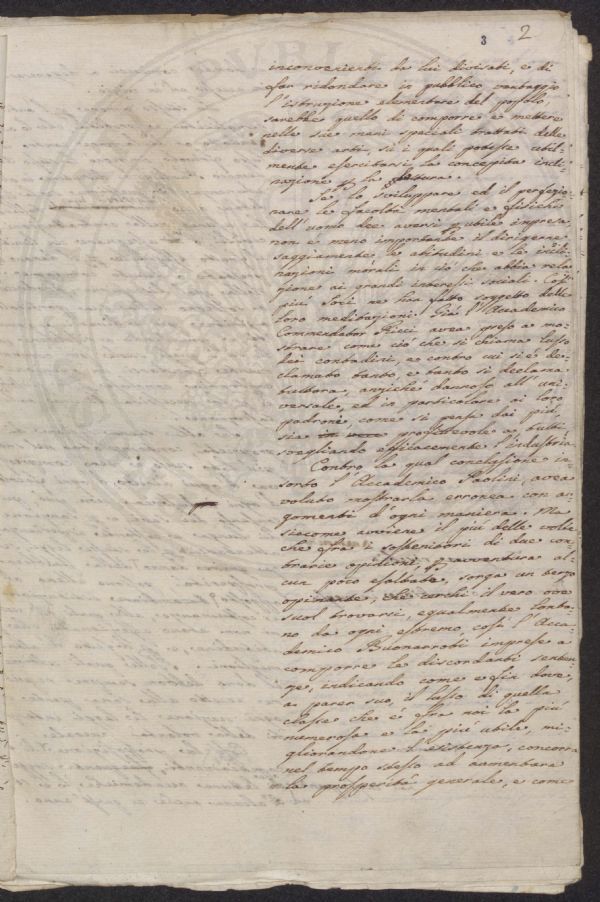 3 2
inconvenienti da lui divisati, e di
far ridondare in pubblico vantaggio
l'istruzione elementare del popolo,
sarebbe quello di comporre e mettere
nelle sue mani speciali trattati delle
diverse arti, su i quali potesse util-
mente esercitarsi la concepita incli-
nazione p la lettura.
Se lo sviluppare ed il perfezio-
nare le facoltà mentali e fisiche
dell'uomo dee aversi p utile impresa
non è meno importante il dirigerne
saggiamente le abitudini e le incli-
nazioni morali in ciò che abbia rela-
zione ai grandi interessi sociali. Così
più Socj ne han fatto soggetto delle
loro meditazioni. Già l'Accademico
Commendator Ricci avea preso a mo-
strare come ciò che si chiama lusso
dei contadini, e contro cui si è de-
clamato tanto, e tanto si declama
tuttora, anziché dannoso all'uni-
versale, ed in particolare ai loro
padroni, come si pensa dai più,
sia in vece profittevole a tutti,
svegliando efficacemente l'industria.
Contro la qual conclusione in-
sorto l'Accademico Paolini, avea
voluto mostrarla erronea con ar-
gomenti d'ogni maniera. Ma
siccome avviene il più delle volte
che fra i sostenitori di due con-
trarie opinioni, p avventura al-
cun poco esaltate, sorga un terzo
opinante, che cerchi il vero ove
suol trovarsi, egualmente lonta-
no da ogni estremo così l'Acca-
demico Buonarroti imprese a
comporre le discordanti senten-
ze, indicando come e fin dove,
a parer suo, il lusso di quella
classe che è fra noi la più
numerosa e la più utile, mi-
gliorandone l'esistenza, concorra
nel tempo stesso ad aumentare
la prosperità generale, e come